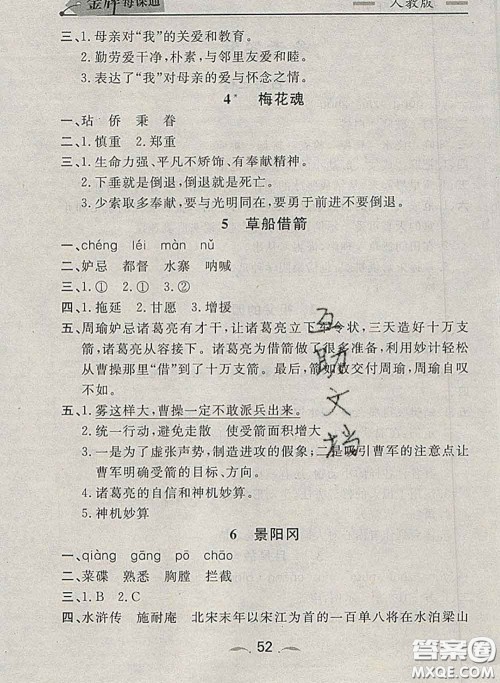 金牌每课通
人教版
三、1. 母亲对“我”的关爱和教育。
2. 勤劳善于干净，朴素，与邻里友爱和谐。
3. 表达了“我”对母亲的爱与怀念之情。
4* 梅花魂
一、玷 侨 秉 眷
二、1. 慎重 2. 郑重
三、1. 生命力强、平凡不矫饰、有奉献精神。
2. 下垂就是倒退，倒退就是死亡。
3. 少索取多奉献，要与光明同在，要勇于前进不要倒退。
5 草船借箭
一、chéng léi màn nǔ
二、妒忌 都督 水寨 呐喊
三、1. ① 2. ① 3. ②
四、1. 拖延 2. 甘愿 3. 增援
五、周瑜妒忌诸葛亮有才干，让诸葛亮立下军令状，三天造好十万支
箭，诸葛亮从容接下。诸葛亮为借箭做了很多准备，利用妙计轻松
从曹操那里“借”到了十万支箭。最后，箭如数交付周瑜，周瑜自叹
不如。
五、1. 雾这样大，曹操一定不敢派兵出来。
2. 统一行动，避免走散 使受箭面积增大
3. 一是为了虚张声势，制造进攻的假象；二是吸引曹军的注意点让
曹军明确受箭的目标、方向。
4. 诸葛亮的自信和神机妙算。
5. 神机妙算
6 景阳冈
一、qiàng gāng pō chāo
二、菜碟 熟悉 胸膛 拦截
三、1. B 2. A C
四、水浒传 施耐庵 北宋末年以宋江为首的一百单八将在水泊梁山
52
互助文档
答案圈
MXQE.COM